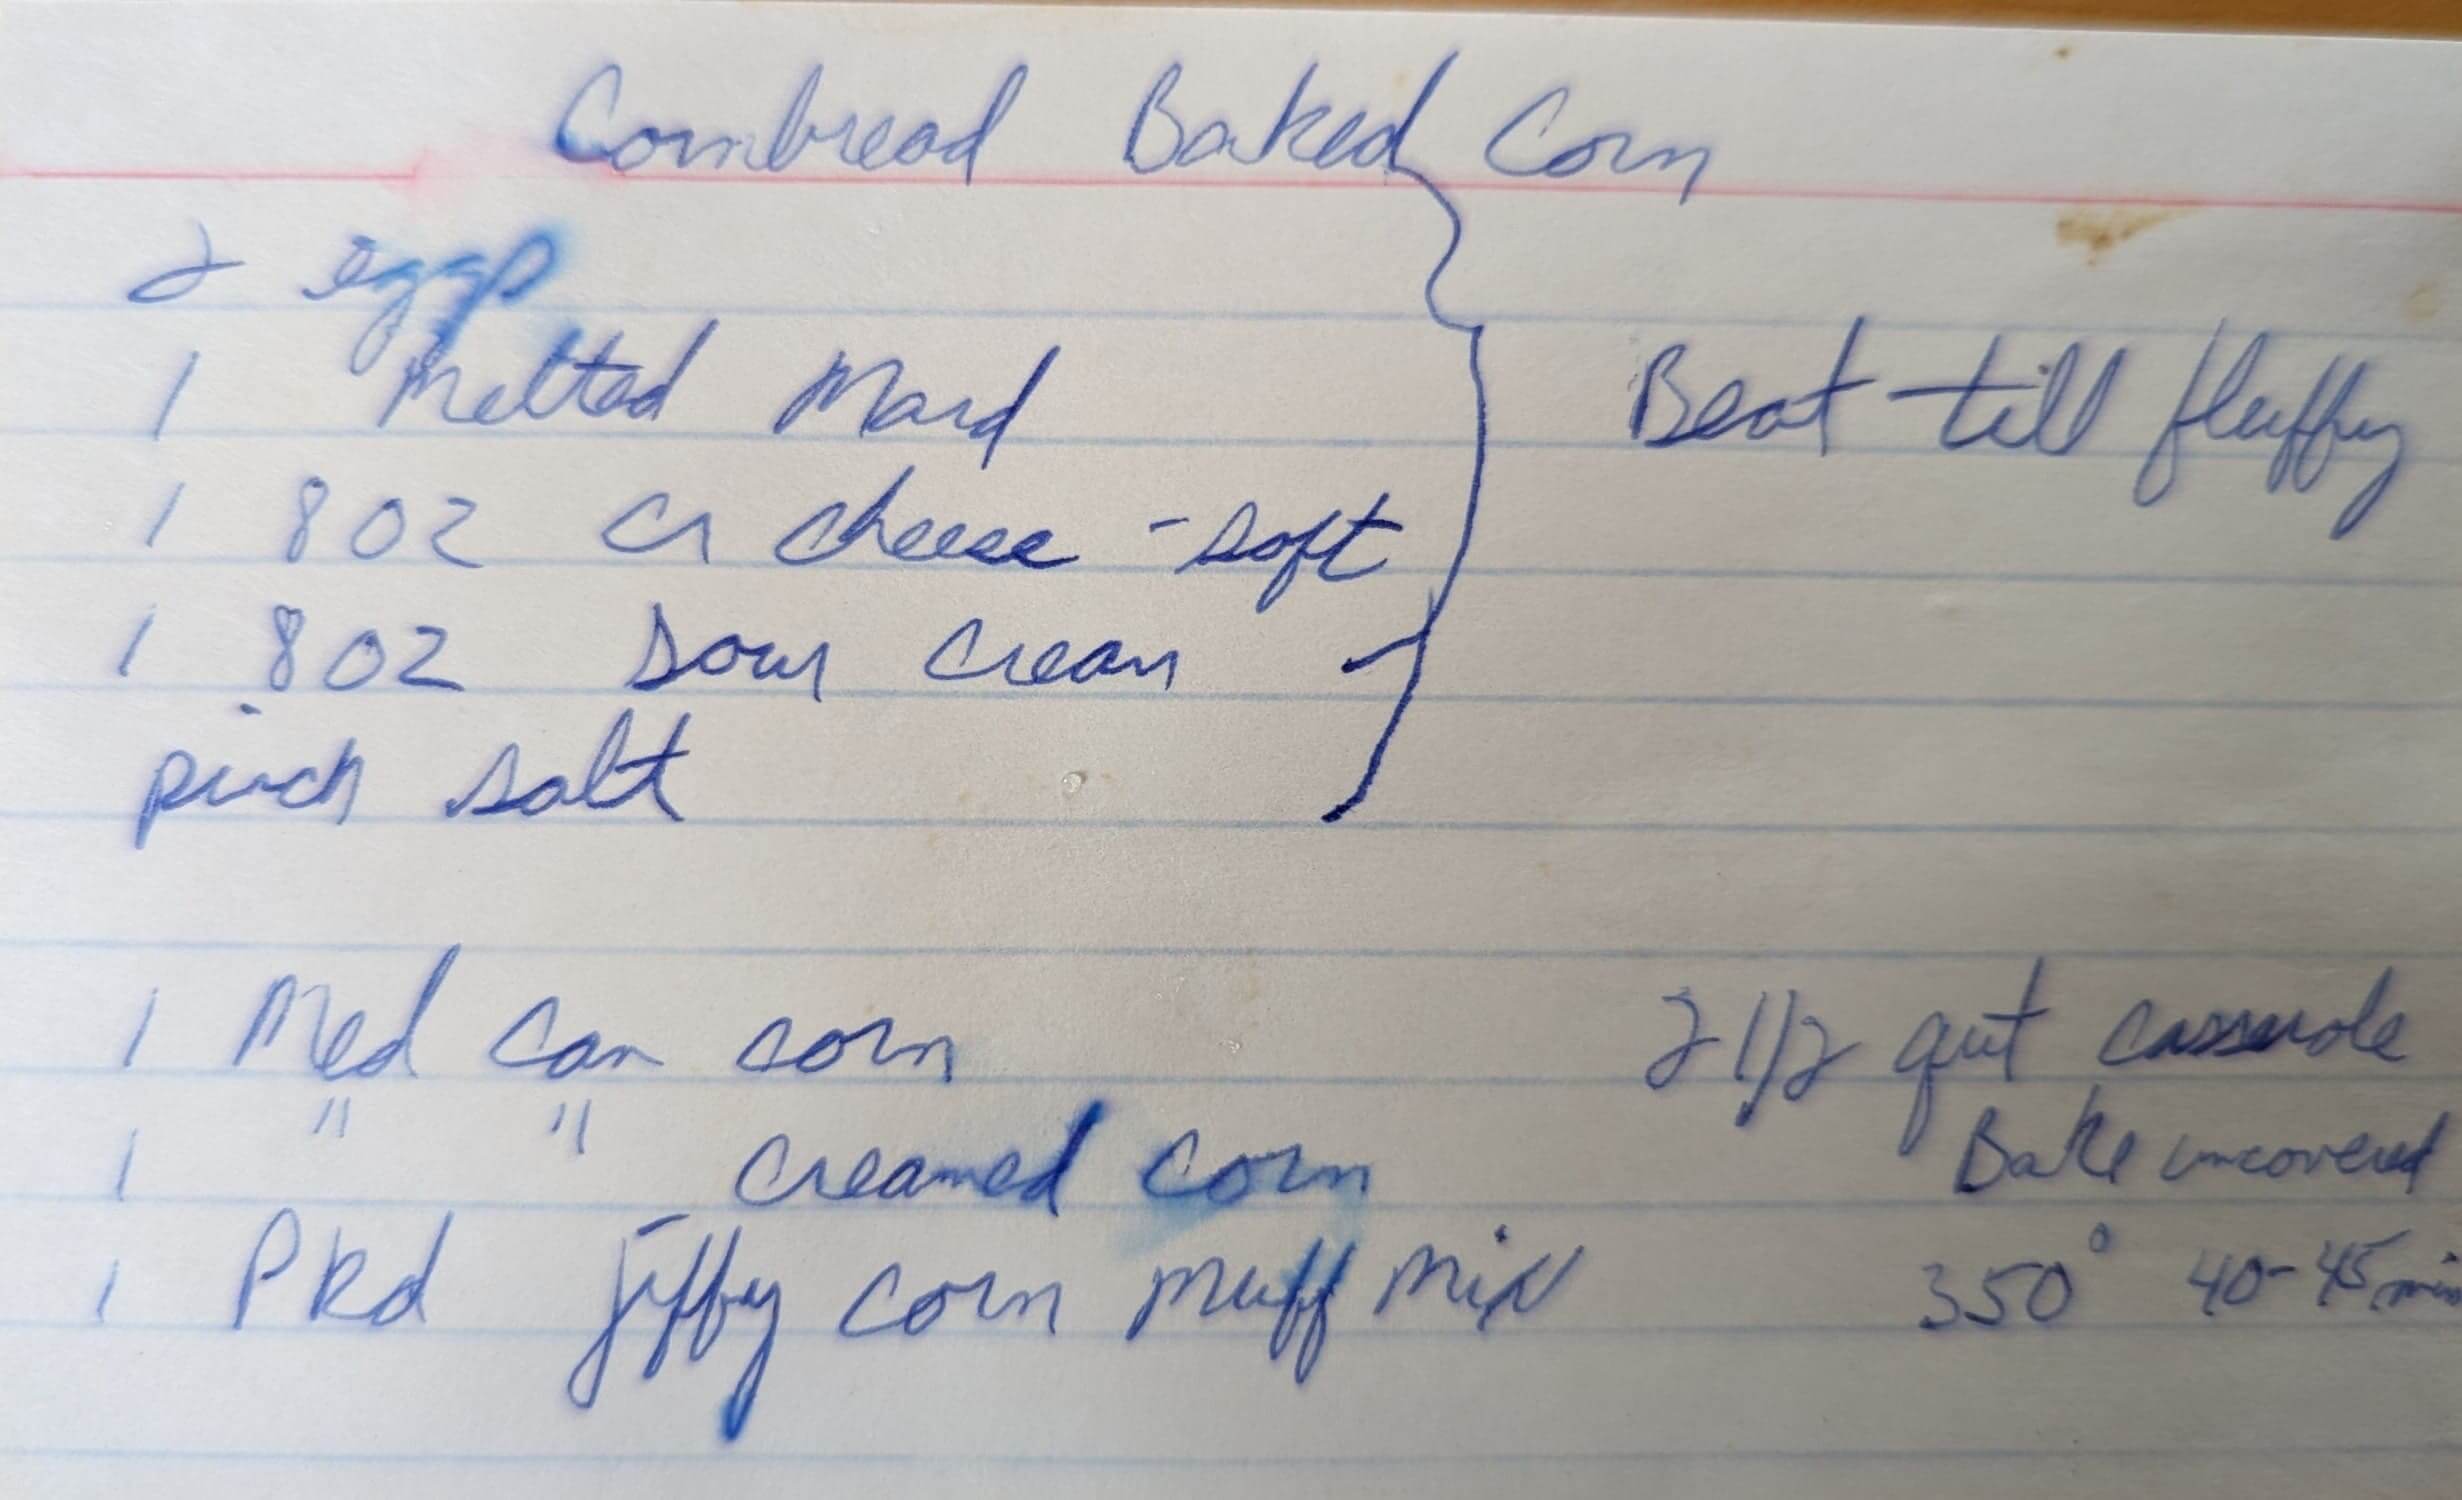 Cornbread Baked Corn
2 eggs
1 Melted Mard
Beat till fluffy
1 8 oz cr cheese - soft
1 8 oz sour cream
pinch salt
1 Med can corn
2 1/2 qut casserole
1 " " creamed corn
Bake uncovered
1 Pkd Jiffy corn muff mix
350° 40-45 min